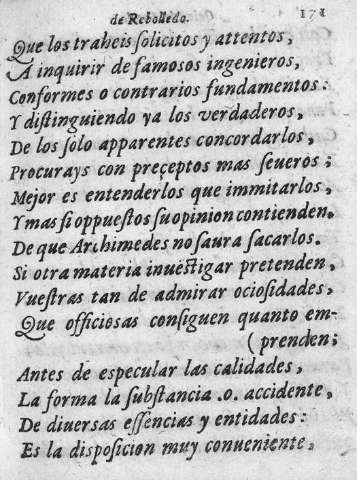 de Rebolledo. 171
Que los traheis ſolicitos y attentos,
A inquirir de famosos ingenieros,
Conformes o contrarios fundamentos:
Y diſtinguiendo ya los verďaderos,
De los ſolo apparentes concordarlos,
Procurays con preçeptos mas ſeueros;
Mejor es entenderlos que immitarlos,
Y mas ſi oppueſtos ſu opinion contienden,
De que Archimedes no ſaura ſacarlos.
Si otra materia inueſtigar pretenden,
Vueſtras tan de admirar ocioſidades,
Que officioſas conſiguen quanto em-
(prenden;
Antes de eſpecular las calidades,
La forma la ſubſtancia .o. accidente,
De diuerſas eſſencias y entidades:
Es la diſpoſicion muy conueniente,